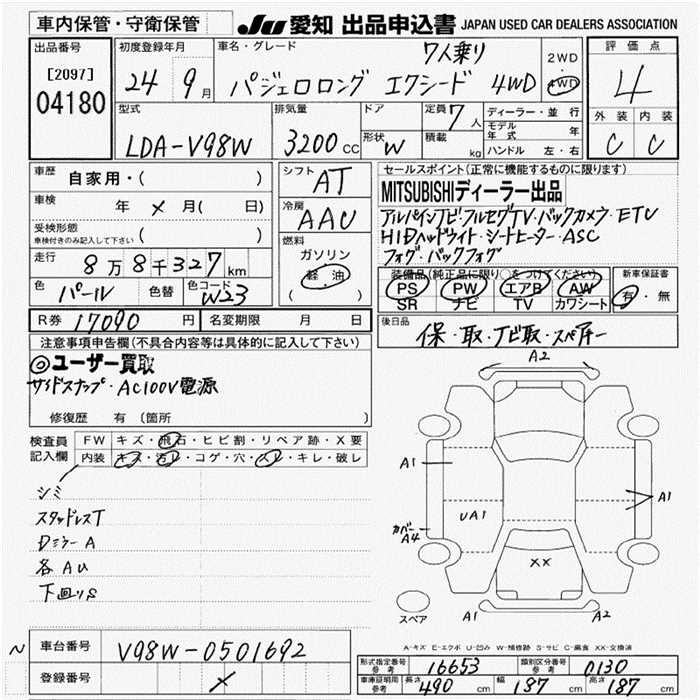 車内保管・守衛保管
JU 愛知 出品申込書 JAPAN USED CAR DEALERS ASSOCIATION
出品番号
[2097]
04180
初度登録年月
24年 9月
車名・グレード
7人乗り
パジェロロング エクシード 4WD
2WD
4WD
評価点
4
外装 内装
C C
型式
LDA-V98W
排気量
3200 CC
ドア
形状 W
定員 7人
積載 kg
ディーラー・並行
モデル年式 年
ハンドル 左・右
車歴 自家用・( )
車検 年 × 月( 日)
受検形態
車検付きのみ記入して下さい ( )
走行 8万8千327km
色 パール 色替 色コード W23
シフト AT
冷房 AAC
燃料
ガソリン
軽油
( )
セールスポイント(正常に機能するものに限ります)
MITSUBISHIディーラー出品
アルパインナビ・フルセグTV・バックカメラ・ETC
HIDヘッドライト・シートヒーター・ASC
フォグ・バックフォグ
装備品(純正品に限り○をつけてください) 新車保証書
PS PW エアB AW 有・無
SR ナビ TV カワシート
R券 17090 円 名変期限 月 日
後日品
保・取・ナビ取・スペアキー
注意事項申告欄(不具合内容等は具体的に記入して下さい)
◎ユーザー買取
サイドステップ・AC100V電源
修復歴 有(箇所 )
検査員記入欄
FW キズ・飛石・ヒビ割・リペア跡・X要
内装 キズ・汚レ・コゲ・穴・スレ・キレ・破レ
シミ
スタッドレスT
Dミラー A
各 AU
下回りS
A2
A1
A1
UA1
カバー A4
XX
スペア
A1
A2
A-キズ E-エクボ U-凹み W-補修跡 S-サビ C-腐食 XX-交換済
車台番号 V98W-0501692
登録番号 ×
形式指定番号 参考 16653 類別区分番号 参考 0130
車庫証明用 参考 長さ 490 cm 幅 187 cm 高さ 187 cm